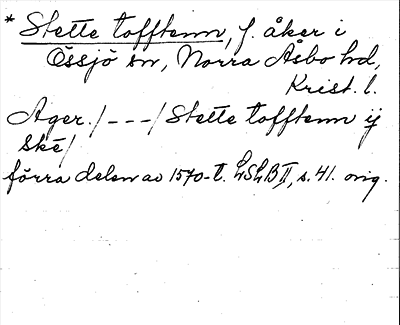 * Stette tofftenn, f. åker i
Össjö sn, Norra Åsbo hd,
Krist. l.
Ager. / - - - / Stette tofftenn ij
ske /
förra delen av 1570-t. LSLB II, s. 41. orig.